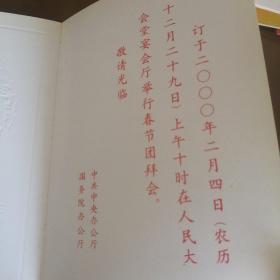 订于二〇〇〇年二月四日（农历
十二月二十九日）上午十时在人民大
会堂宴会厅举行春节团拜会。
敬请光临
中共中央办公厅
国务院办公厅